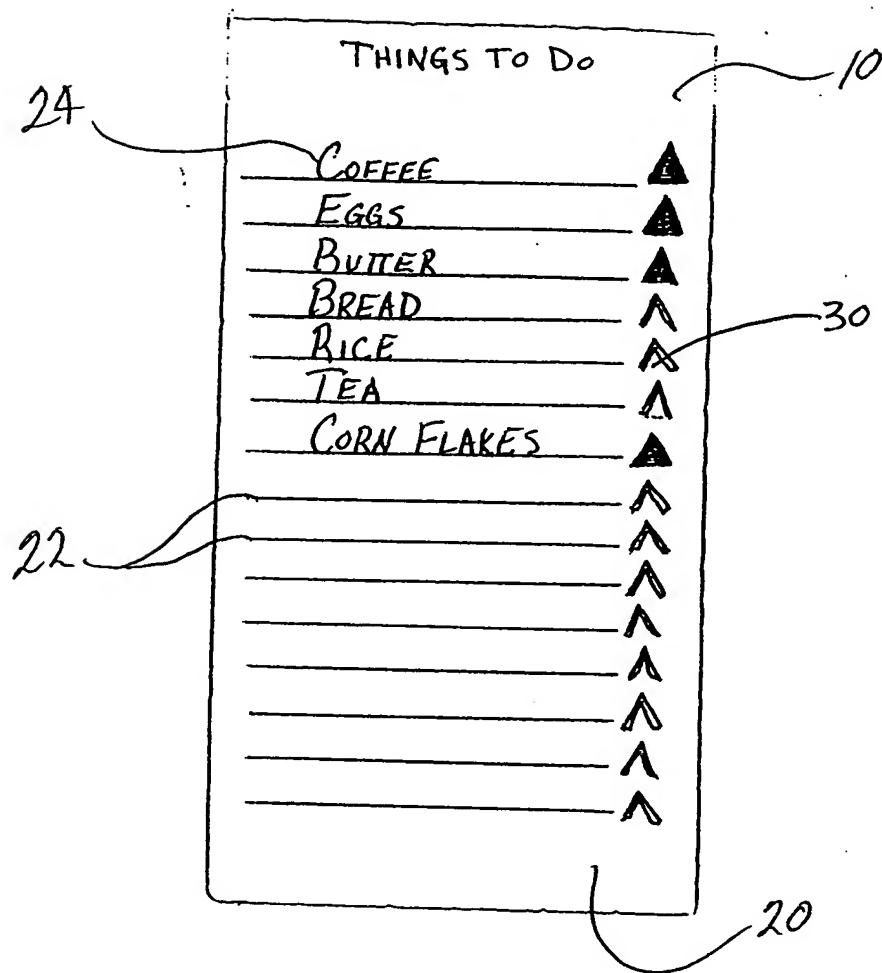 THINGS TO DO
10
24
COFFEE
EGGS
BUTTER
BREAD
30
RICE
TEA
CORN FLAKES
22
20